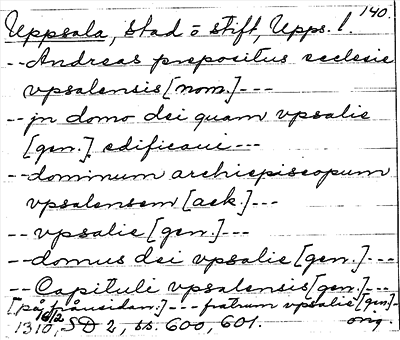 140.
Uppsala, stad o stift, Upps. l.
--Andreas prepositus ecclesie
vpsalensis [nom.]---
--jn domo dei quam vpsalie
[gen.] edificaui---
--dominum archiepiscopum
vpsalensem [ack.]---
--vpsalie [gen.]---
--domus dei vpsalie [gen.]---
--Capituli vpsalensis [gen.]---
[på framsidan:]---fratrum vpsalie [gen.]-
1310 16/2, SD 2, ss. 600, 601. orig.